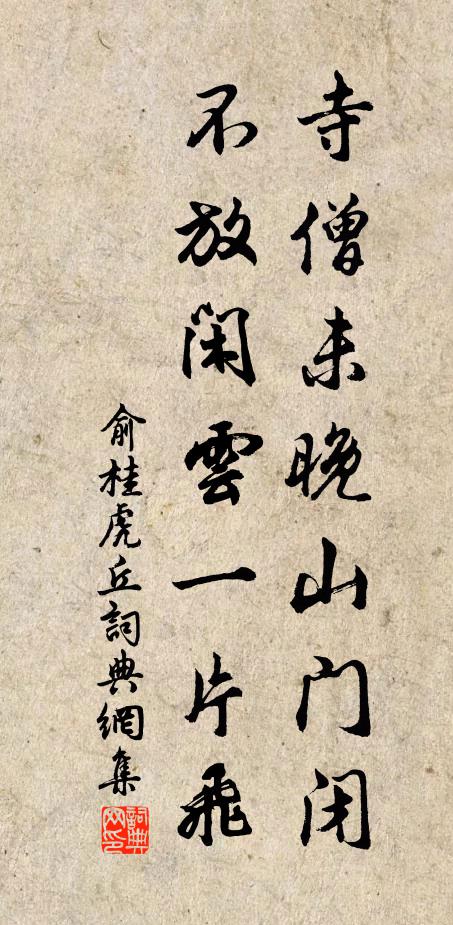 寺僧未晚山门闭
不放闲雲一片飛
俞桂虎丘詞典網集
詞典网印